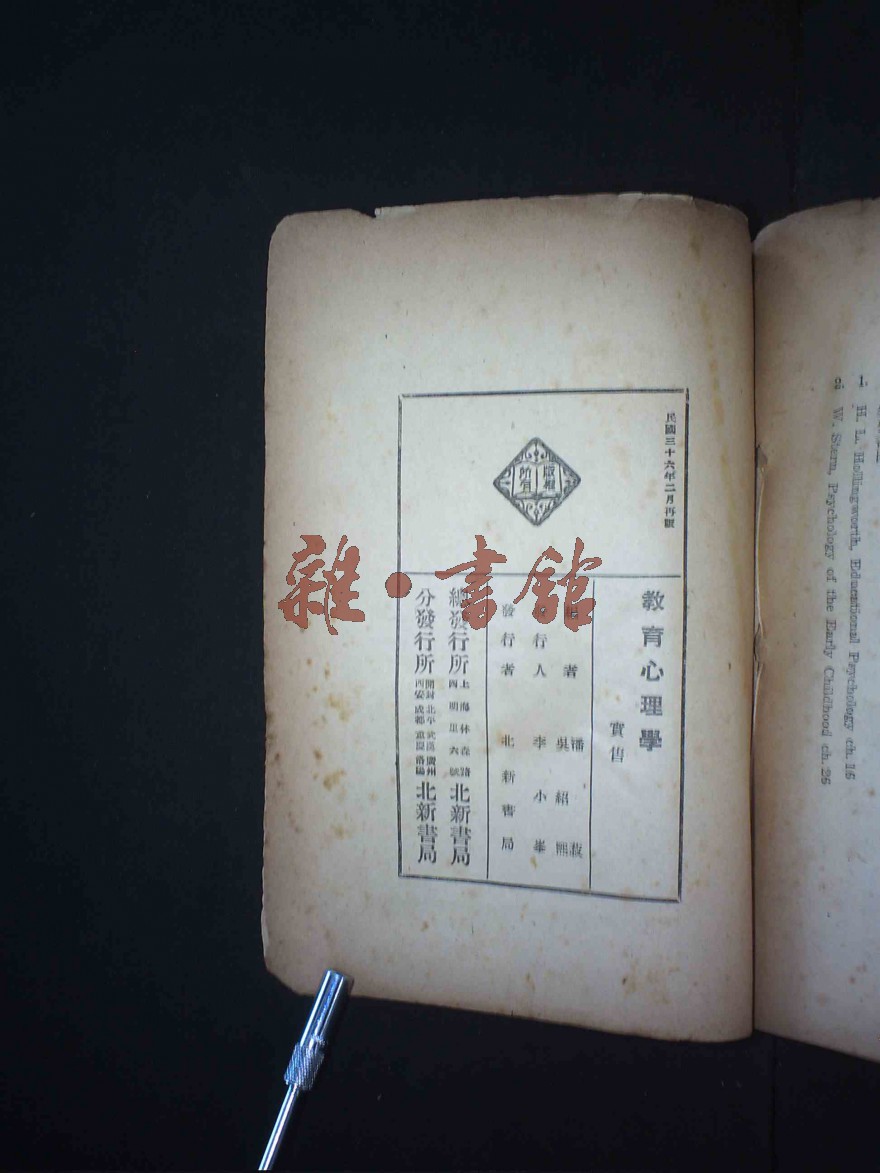 民國三十六年二月再版
版權
所有
教育心理學
實售
編者 潘菽
吳紹熙
發行人 李小峯
發行者 北新書局
總發行所 上海林森路
四明里六號 北新書局
分發行所 開封 北平 武漢 廣州
西安 成都 重慶 北新書局
雜·書館
1. H. L. Hollingworth, Educational Psychology ch. 16
2. W. Stern, Psychology of the Early Childhood ch. 26